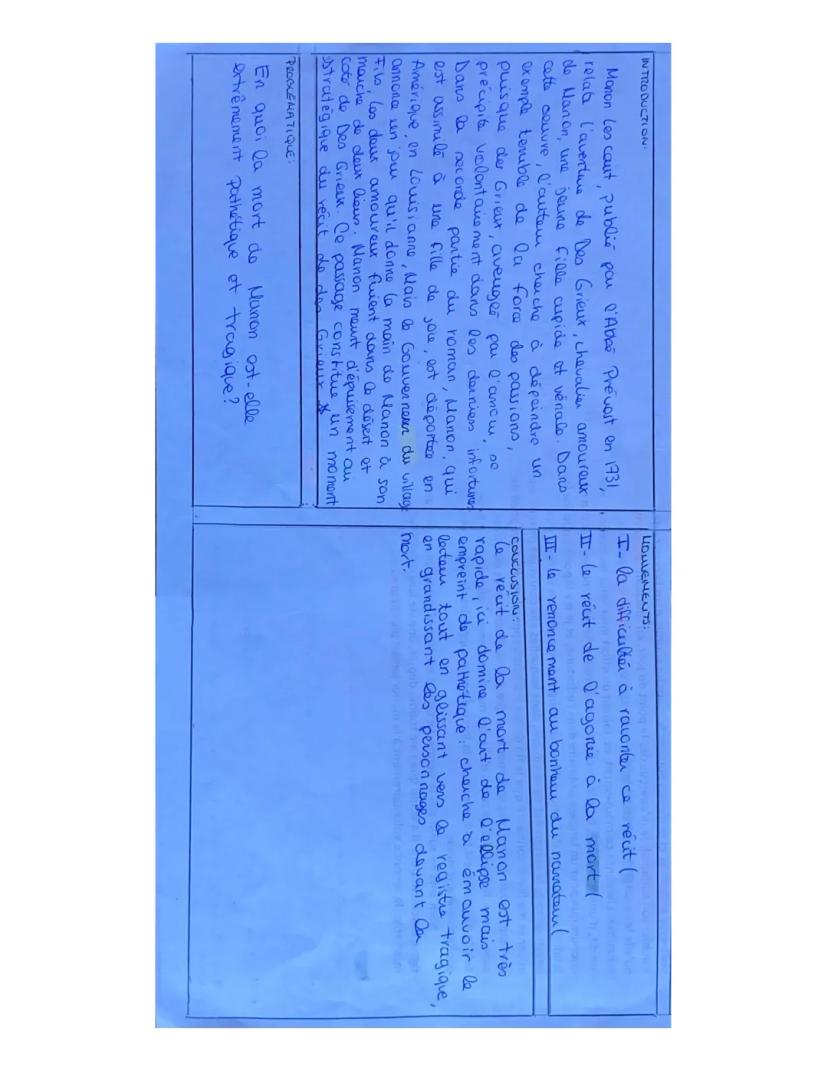 INTRODUCTION:
Manon Lescaut, publié par l'Abbé Prévost en 1731,
relate l'aventure de Des Grieux, chevalier amoureux
de Manon, une jeune fille cupide et vénale. Dans
cette oeuvre, l'auteur cherche à dépeindre un
exemple terrible de la force des passions,
puisque des Grieux, aveuglé par l'amour, se
précipite volontairement dans les derniers infortunes
Dans la seconde partie du roman, Manon, qui
est assimilé à une fille de joie, est déportée en
Amérique, en Louisianne, Mais le Gouverneur du village
annonce un jour qu'il donne la main de Manon à son
Fils, les deux amoureux fuient dans le désert et
marche de deux lieues. Manon meurt d'épuisement au
coté de Des Grieux. Ce passage constitue un moment
stratégique du récit de des Grieux
PROBLÉMATIQUE:
En quoi la mort de Manon est-elle
extrêmement pathétique et tragique?
MOUVEMENTS:
I- la difficultée à raconter ce récit (
II- le récit de l'agonie à la mort (
III- le renoncement au bonheur du narrateur(
CONCLUSION:
le récit de la mort de Manon est très
rapide, ici domine l'art de l'ellipse mais
empreint de pathétique: cherche à émouvoir le
lecteur tout en glissant vers le registre tragique,
en grandissant les personnages devant la
mort.